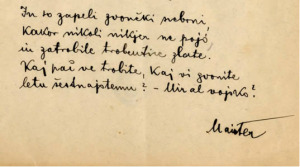 In so zapeli zvončki nebroj,
kakor nikoli nikjer ne pojó,
in zatrobile trobentice zlate.
Kaj pač ve trobite, kaj vi zvonite
letu šestnajstemu? – Mir al vojsko?
Maister